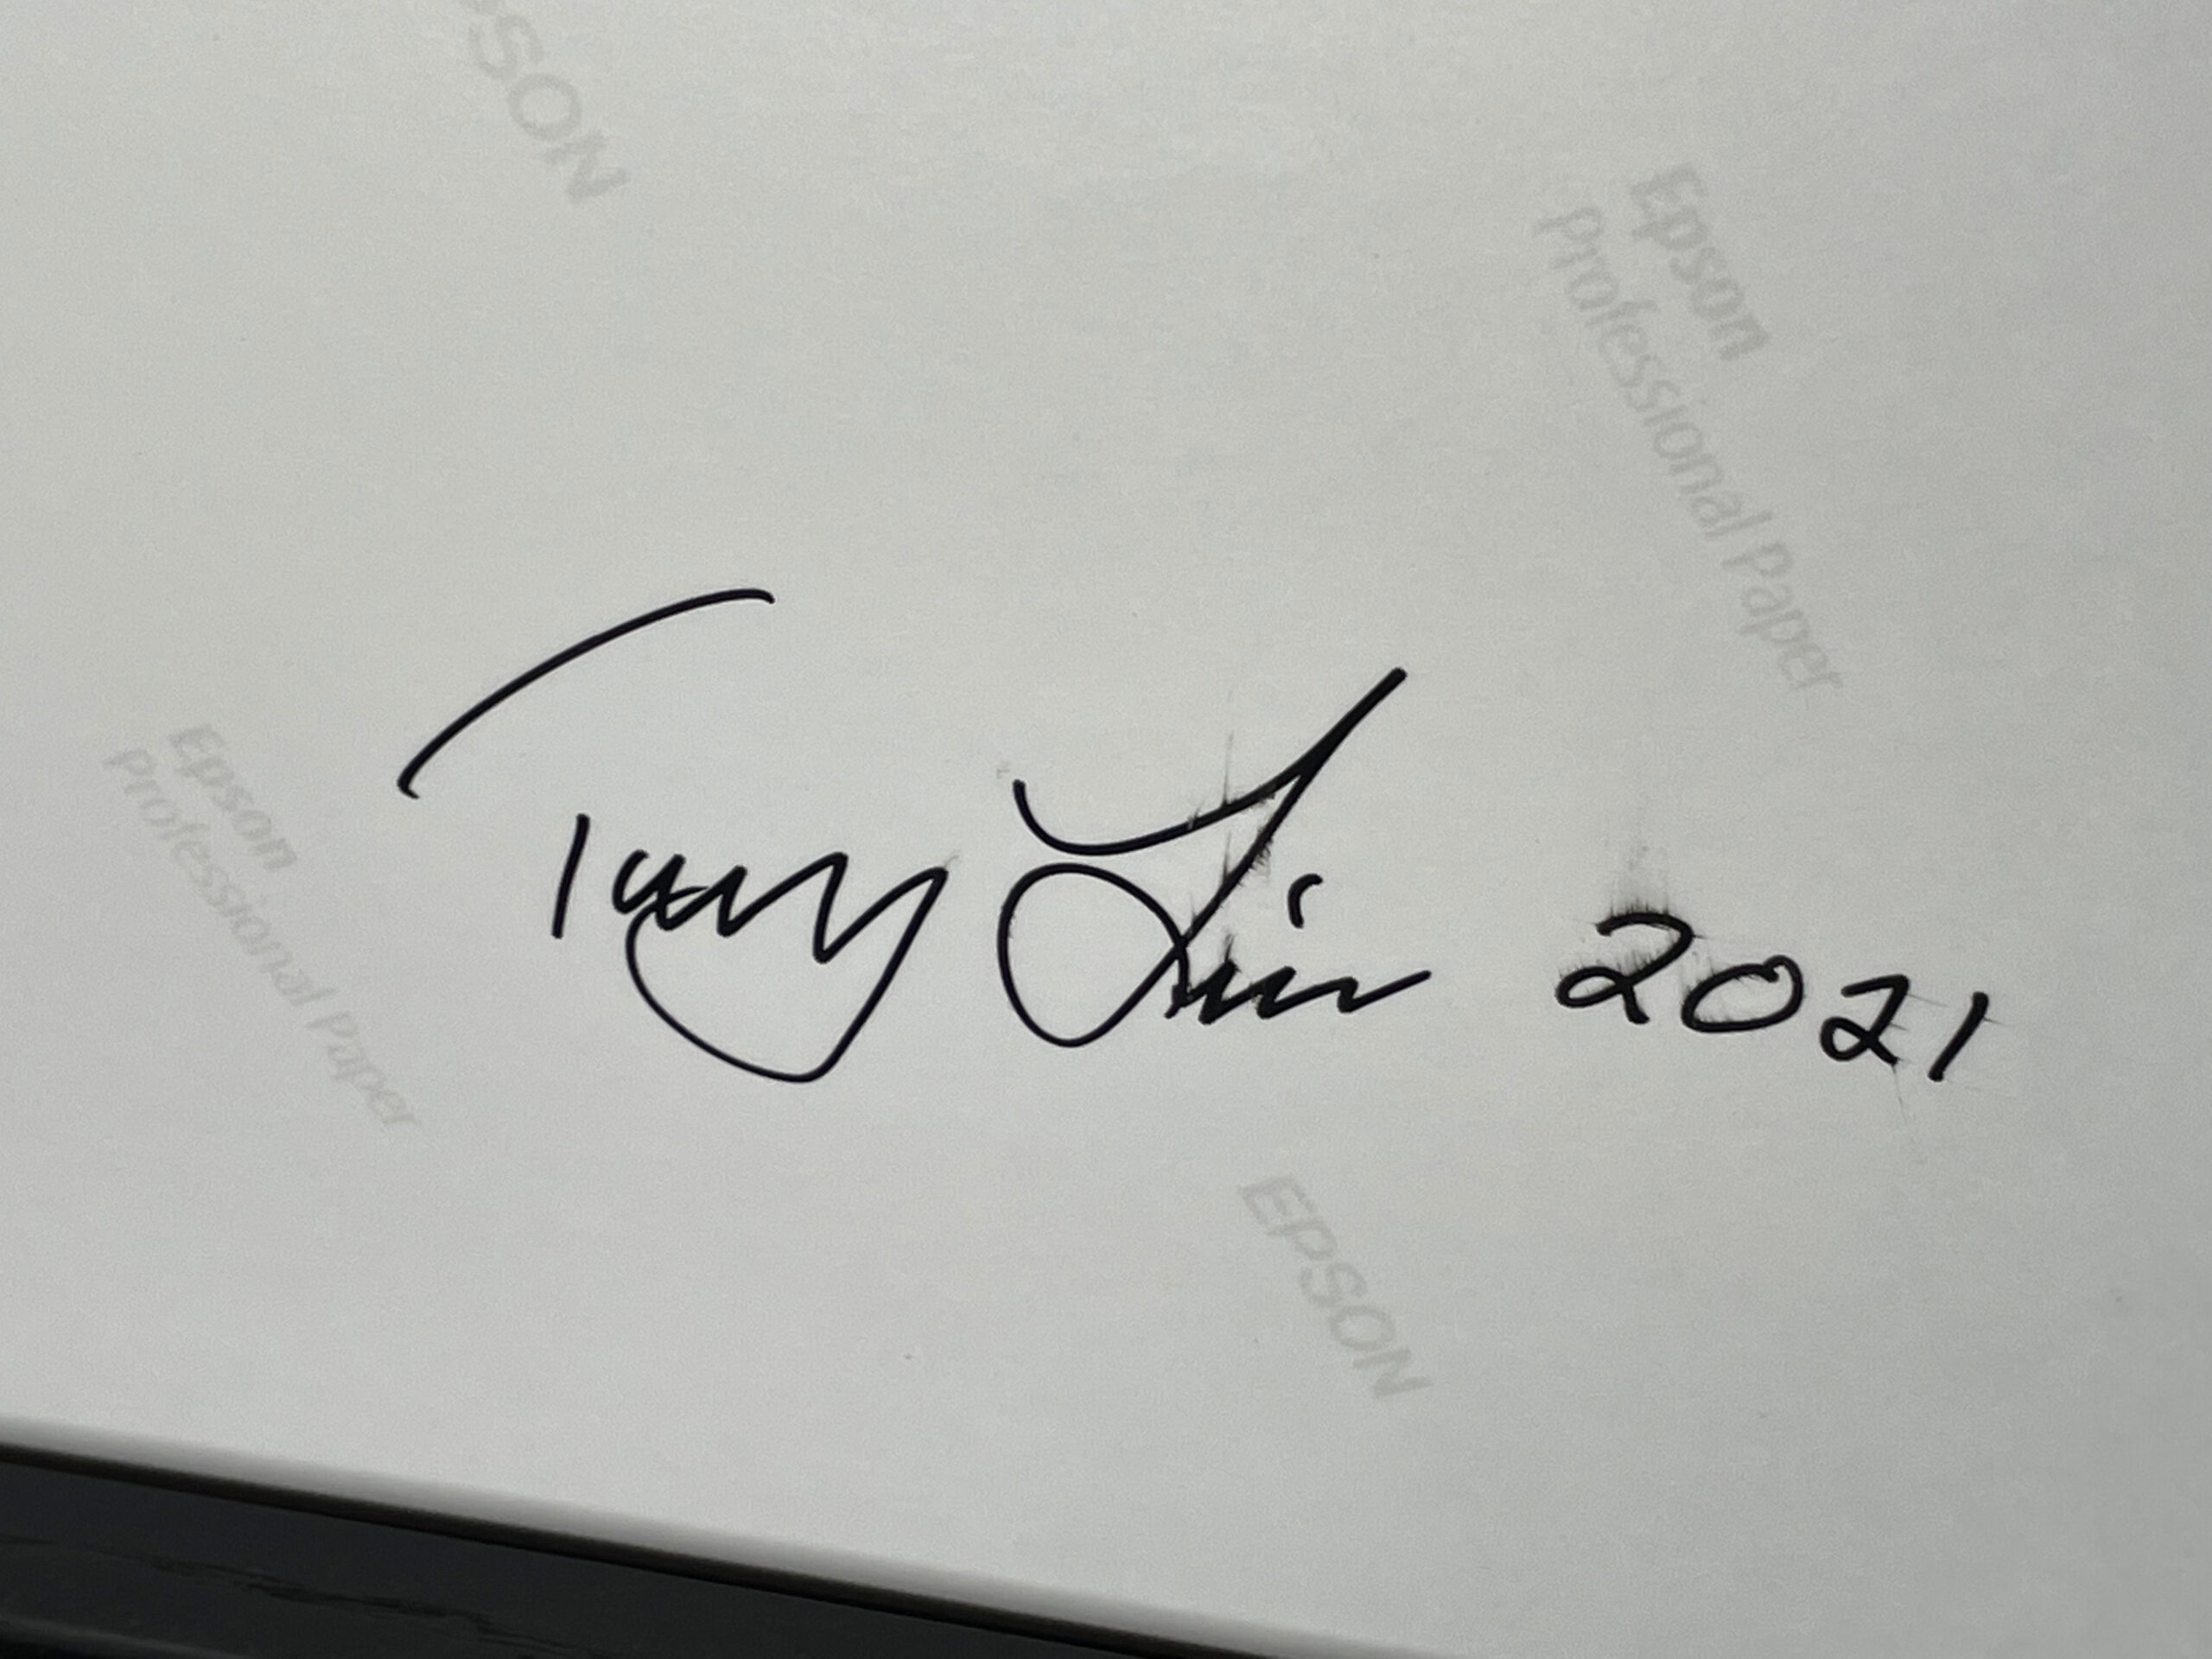 SON
Epson
Professional Paper
Epson
Professional Paper
Lin 2021
EPSON